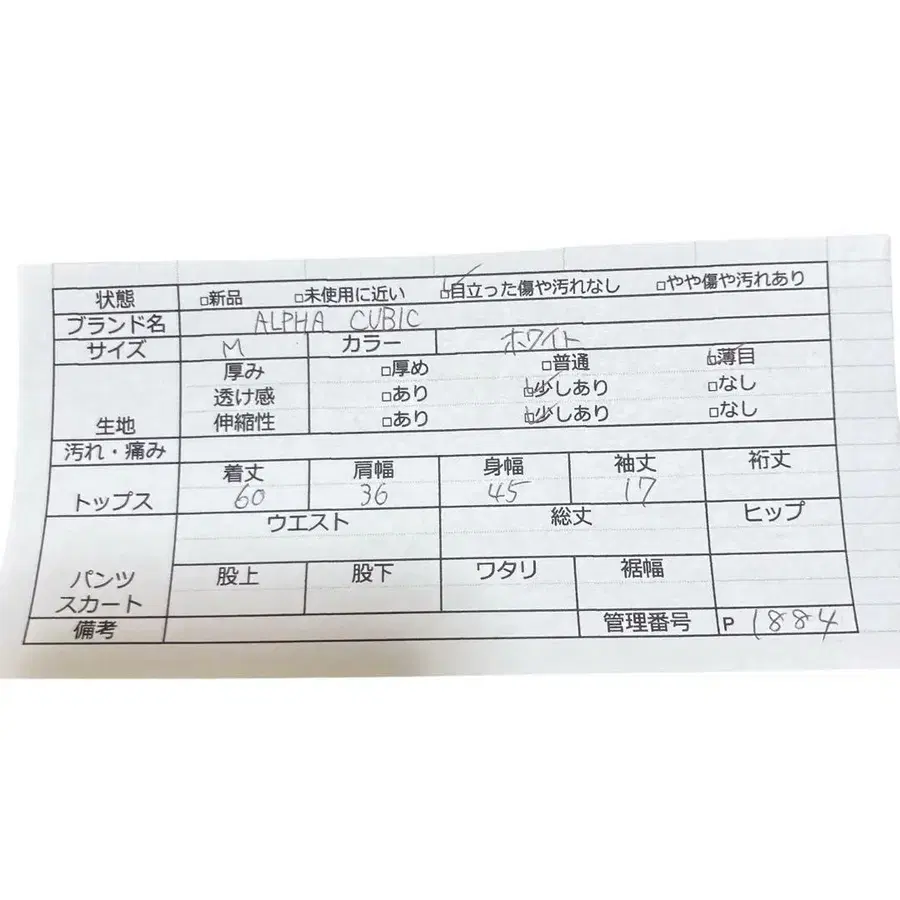 状態 □新品 □未使用に近い ☑目立った傷や汚れなし □やや傷や汚れあり
ブランド名 ALPHA CUBIC
サイズ M カラー ホワイト
生地 厚み □厚め □普通 ☑薄目
透け感 □あり ☑少しあり □なし
伸縮性 □あり ☑少しあり □なし
汚れ・痛み
トップス 着丈 肩幅 身幅 袖丈 裄丈
60 36 45 17
パンツ スカート ウエスト 総丈 ヒップ
股上 股下 ワタリ 裾幅
備考 管理番号 P 1884